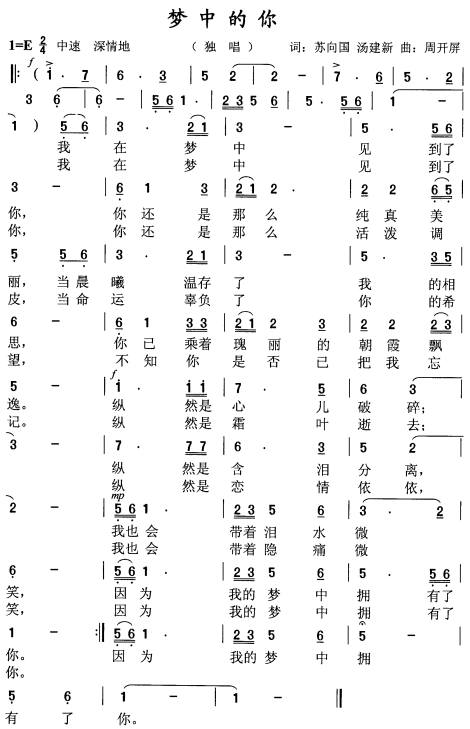 梦中的你
1=E 2/4 中速 深情地 （独唱） 词：苏向国 汤建新 曲：周开屏
f
‖: ( i · 7 | 6 · 3 | 5 2 | 2 5 | 7 · 5 |
3 6 | 6 – | 5 6 1 · | 2 3 5 6 | 5 · 5 6 | 1 – |
1 ) 5 6 | 3 · 2 1 | 3 – | 5 · 5 6 |
我 在 梦 中 见 到了
我 在 梦 中 见 到了
3 – | 6 1 3 | 2 1 2 · | 2 2 6 5 |
你， 你还 是 那么 纯真 美
你， 你还 是 那么 活泼 调
5 5 6 | 3 · 2 1 | 3 · | 5 · 3 5 |
丽，当晨 曦 温存 了 我 的相
皮，当命 运 辜负 了 你 的希
6 – | 6 1 3 3 | 2 1 2 3 | 2 2 2 3 |
思， 你已 乘着 瑰丽 的 朝霞 飘
望， 不知 你 是否 已 把我 忘
f
5 – | i · i i | 7 · 5 | 6 3 |
逸。 纵 然是 心 儿 破碎；
记。 纵 然是 霜 叶 逝去；
3 – | 7 · 7 7 | 6 · 3 | 5 2 |
纵 然是 含 泪 分离，
纵 然是 恋 情 依依，
mp
2 – | 5 6 1 · | 2 3 5 6 | 3 · 2 |
我也会 带着泪 水 微
我也会 带着隐 痛 微
6 – | 5 6 1 · | 2 3 5 6 | 5 · 5 6 |
笑， 因为 我的梦 中 拥 有了
笑， 因为 我的梦 中 拥 有了
1 – :‖ 5 6 1 · | 2 3 5 6 | 5 – |
你。 因为 我的梦 中 拥
你。
5 6 | 1 – | 1 – ‖
有 了 你。